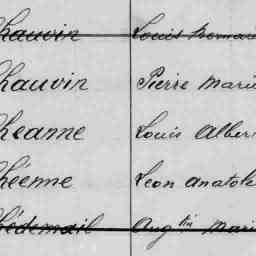 Chauvin Louis Romain
Chauvin Pierre Marie
Cheanne Louis Alber
Chéenne Leon Anatole
Chédemail Aug tin Marie